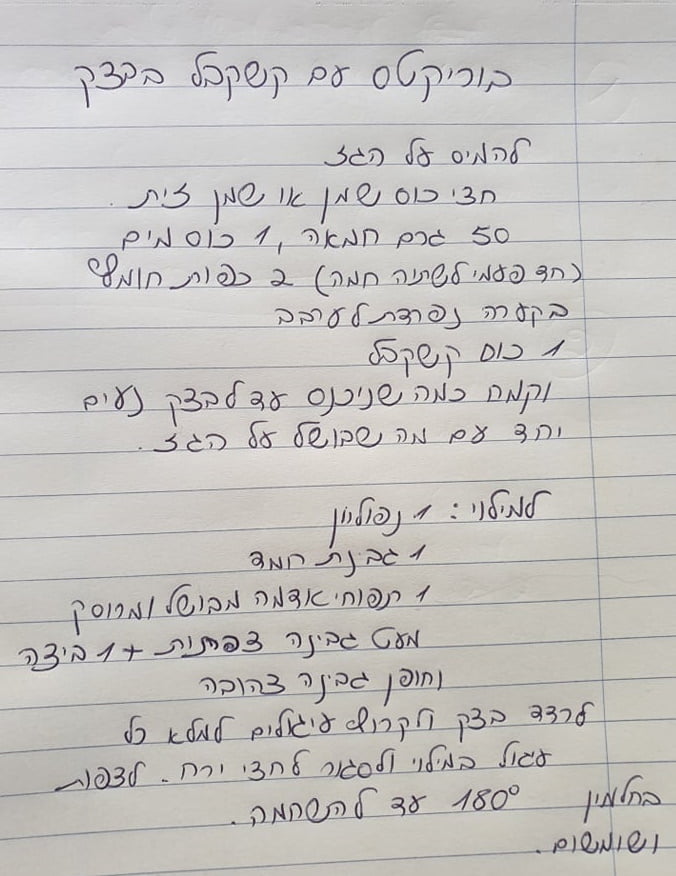 בוריקטס עם קשקבל בבצק
להמיס על הגז
חצי כוס שמן או שמן זית .
50 גרם חמאה , 1 כוס מים
(חד פעמי לשתיה חמה) 2 כפות חומץ
בקערה נפרדת לערבב
1 כוס קשקבל
וקמח כמה שניכנס עד לבצק נעים
יחד עם מה שבושל על הגז .
למילוי : 1 נפוליון
1 גבינת חמד
1 תפוחי אדמה מבושל ומרוסק
מעט גבינה צפתית + 1 ביצה
וחופן גבינה צהובה
לרדד בצק ולקרוץ עיגולים למלא כל
עגול במילוי ולסגור לחצי ירח . לצפות
בחלמון 180° עד להשחמה .
ושומשום .